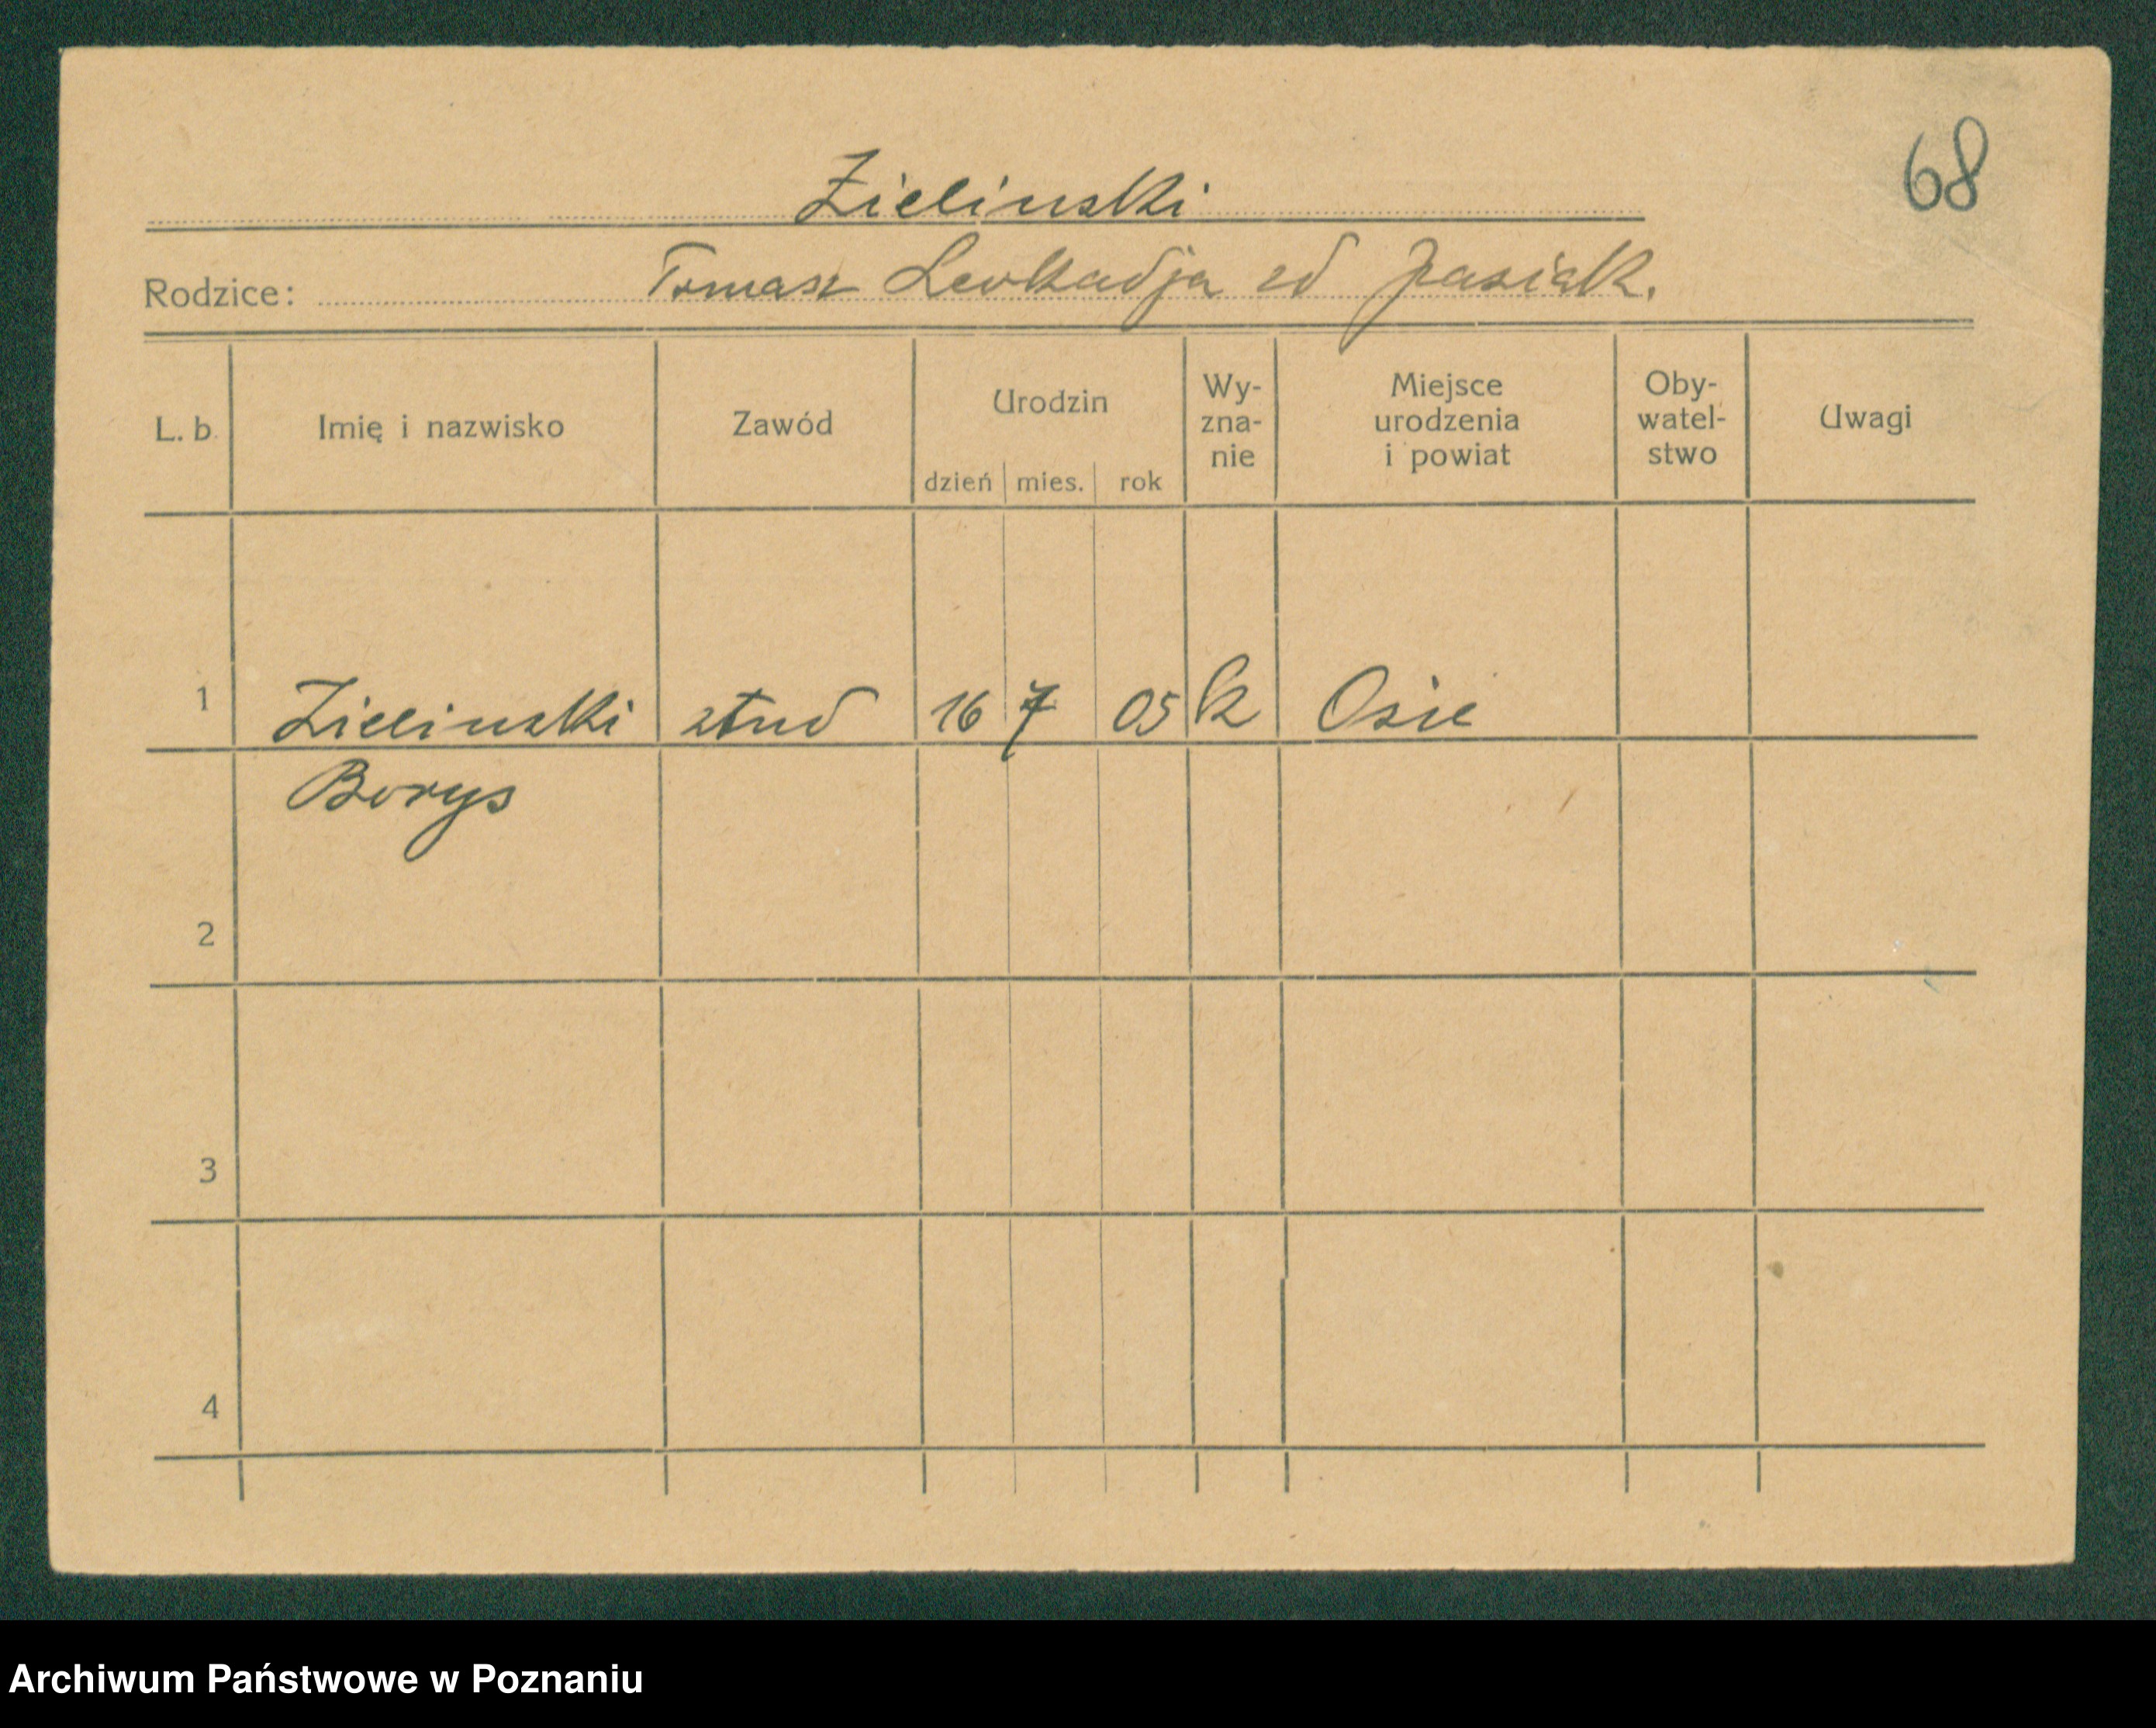 68
Zielinski
Rodzice: Tomasz Leokadja zd Jasiak.
L. b. Imię i nazwisko Zawód Urodzin dzień mies. rok Wy-zna-nie Miejsce urodzenia i powiat Oby-watel-stwo Uwagi
1 Zielinski stud 16 7 05 k Osie
Borys
2
3
4
Archiwum Państwowe w Poznaniu